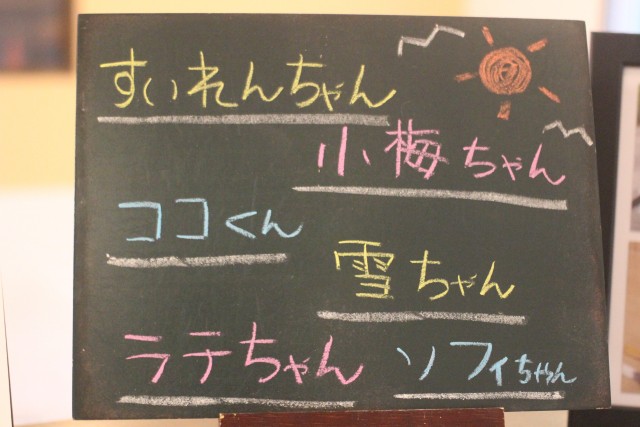 すいれんちゃん
小梅ちゃん
ココくん
雪ちゃん
ラテちゃん
ソフィちゃん